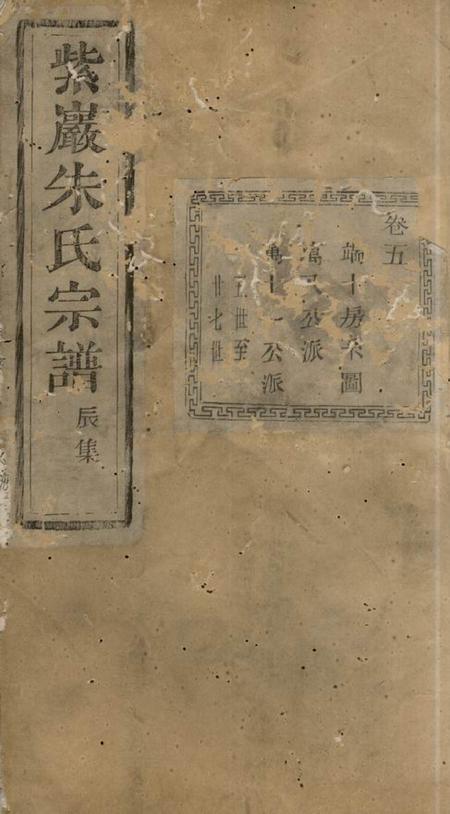 紫巖朱氏宗譜
辰集
卷五
端十房系圖
富八公派
萬十一公派
五世至
廿七世